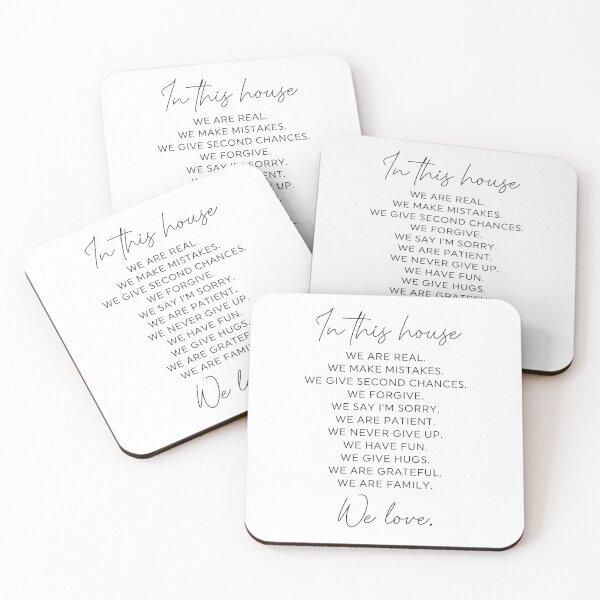 In this house
WE ARE REAL.
WE MAKE MISTAKES.
WE GIVE SECOND CHANCES.
WE FORGIVE.
WE SAY I'M SORRY.
PATIENT.
UP.
In this house
WE ARE REAL.
WE MAKE MISTAKES.
WE GIVE SECOND CHANCES.
WE FORGIVE.
WE SAY I'M SORRY.
WE ARE PATIENT.
WE NEVER GIVE UP.
WE HAVE FUN.
WE GIVE HUGS.
WE ARE GRATEFUL.
In this house
WE ARE REAL.
WE MAKE MISTAKES.
WE GIVE SECOND CHANCES.
WE FORGIVE.
WE SAY I'M SORRY.
WE ARE PATIENT.
WE NEVER GIVE UP.
WE HAVE FUN.
WE GIVE HUGS.
WE ARE GRATEFUL
WE ARE FAMILY.
We lo
In this house
WE ARE REAL.
WE MAKE MISTAKES.
WE GIVE SECOND CHANCES.
WE FORGIVE.
WE SAY I'M SORRY.
WE ARE PATIENT.
WE NEVER GIVE UP.
WE HAVE FUN.
WE GIVE HUGS.
WE ARE GRATEFUL.
WE ARE FAMILY.
We love.